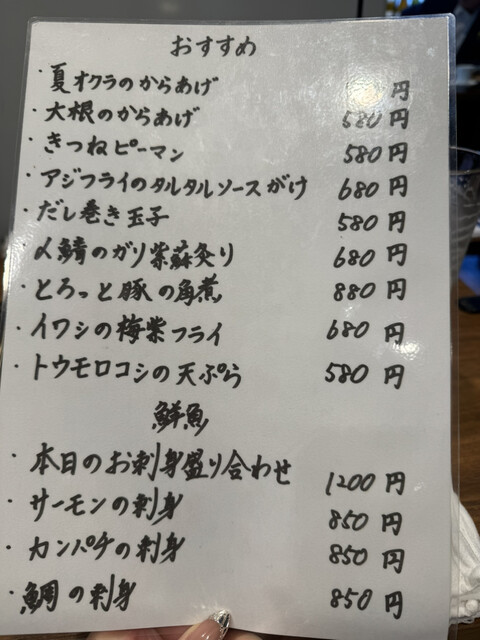 おすすめ
・夏オクラのからあげ 円
・大根のからあげ 580円
・きつねピーマン 580円
・アジフライのタルタルソースがけ 680円
・だし巻き玉子 580円
・〆鯖のガリ紫蘇炙り 680円
・とろっと豚の角煮 880円
・イワシの梅紫フライ 680円
・トウモロコシの天ぷら 580円
鮮魚
・本日のお刺身盛り合わせ 1200円
・サーモンの刺身 850円
・カンパチの刺身 850円
・鯛の刺身 850円